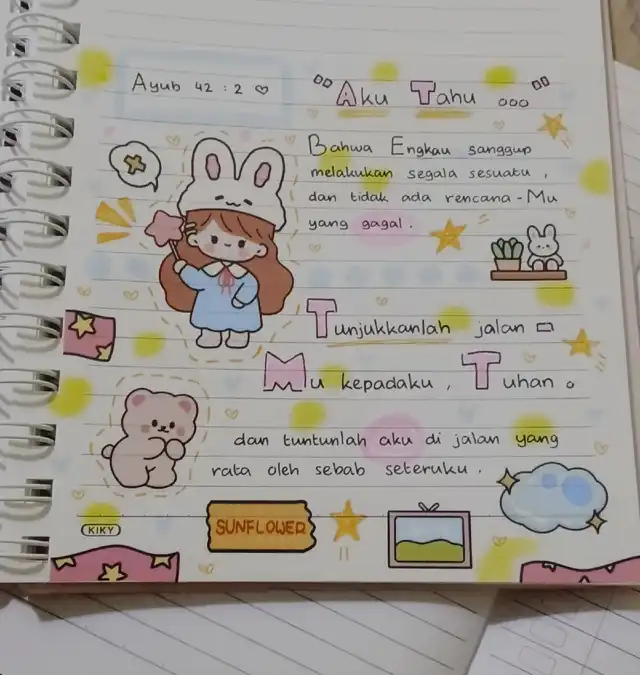 Ayub 42 : 2 ♡
"Aku Tahu ...
Bahwa Engkau sanggup
melakukan segala sesuatu,
dan tidak ada rencana-Mu
yang gagal.
Tunjukkanlah jalan -
Mu kepadaku, Tuhan.
dan tuntunlah aku di jalan yang
rata oleh sebab seteruku.
SUNFLOWER
KIKY